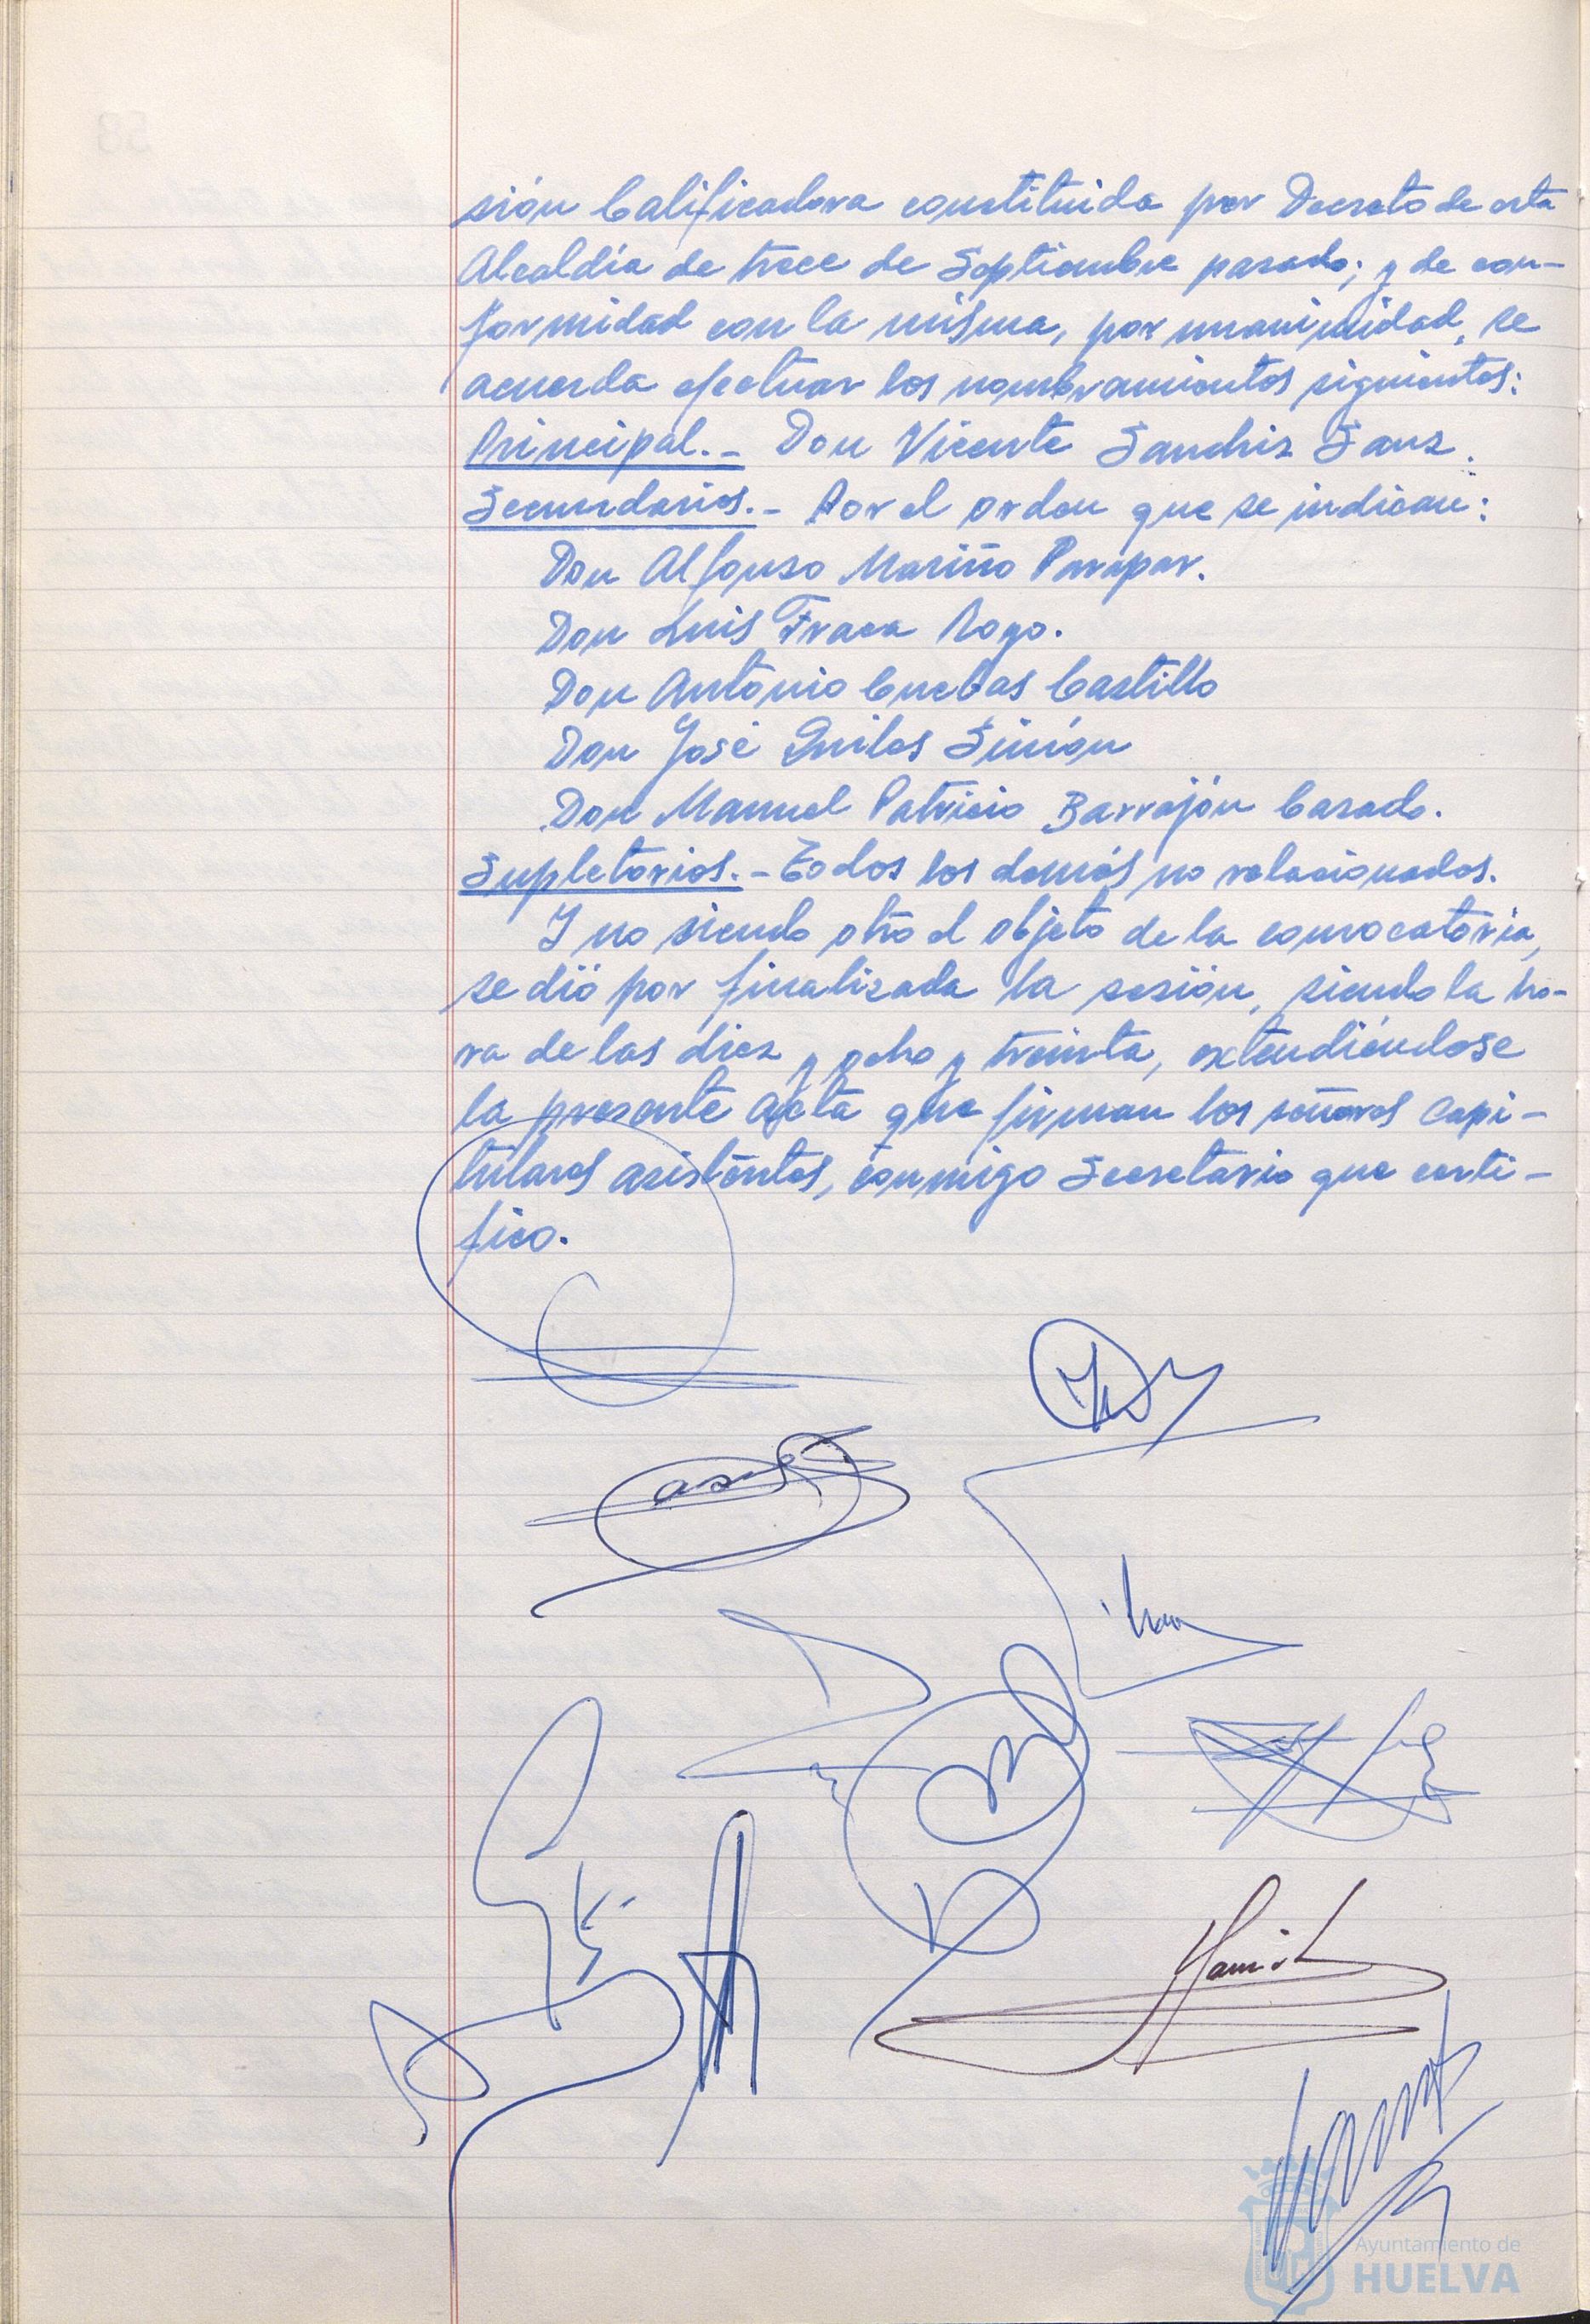 sión Calificadora constituida por Decreto de esta
Alcaldía de trece de Septiembre pasado; y de con-
formidad con la misma, por unanimidad, se
acuerda efectuar los nombramientos siguientes:
Principal.- Don Vicente Sanchis Sanz.
Secundarios.- Por el orden que se indican:
Don Alfonso Mariño
Don Luis Fraca Royo.
Don Antonio Cuebas Castillo
Don José Quiles Simón
Don Manuel Patricio Barrajón Casado.
Supletorios.- Todos los demás no relacionados.
Y no siendo otro el objeto de la convocatoria,
se dió por finalizada la sesión, siendo la ho-
ra de las diez y ocho y treinta, extendiéndose
la presente acta que firman los señores Capi-
tulares asistentes, conmigo Secretario que certi-
fico.
Ayuntamiento de
HUELVA